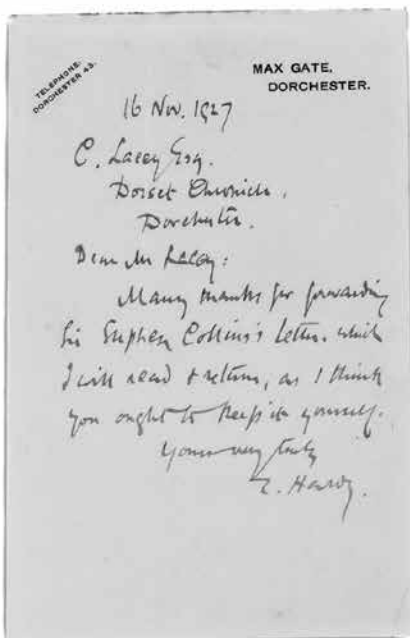 TELEPHONE:
DORCHESTER 43.
MAX GATE,
DORCHESTER.
16 Nov. 1927
C. Lacey Esq.
Dorset Chronicle.
Dorchester.
Dear Mr Lacey:
Many thanks for forwarding
Sir Stephen Collins's letter, which
I will read & return, as I think
you ought to keep it yourself.
Yours very truly
T. Hardy.